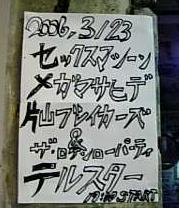 2006.3/23
セックスマシーン
メガマサヒデ
片山ブレイカーズ
ザ・ロ&シローパーティ
デルスター
19:00 START